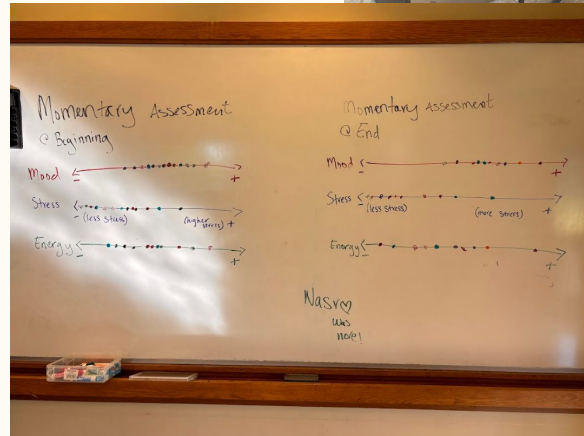 Momentary Assessment
@ Beginning
Mood
- +
Stress
- (less stress) (higher stress) +
Energy
- +
Momentary Assessment
@ End
Mood
- +
Stress
- (less stress) (more stress) +
Energy
- +
Nasro♡
was
here!